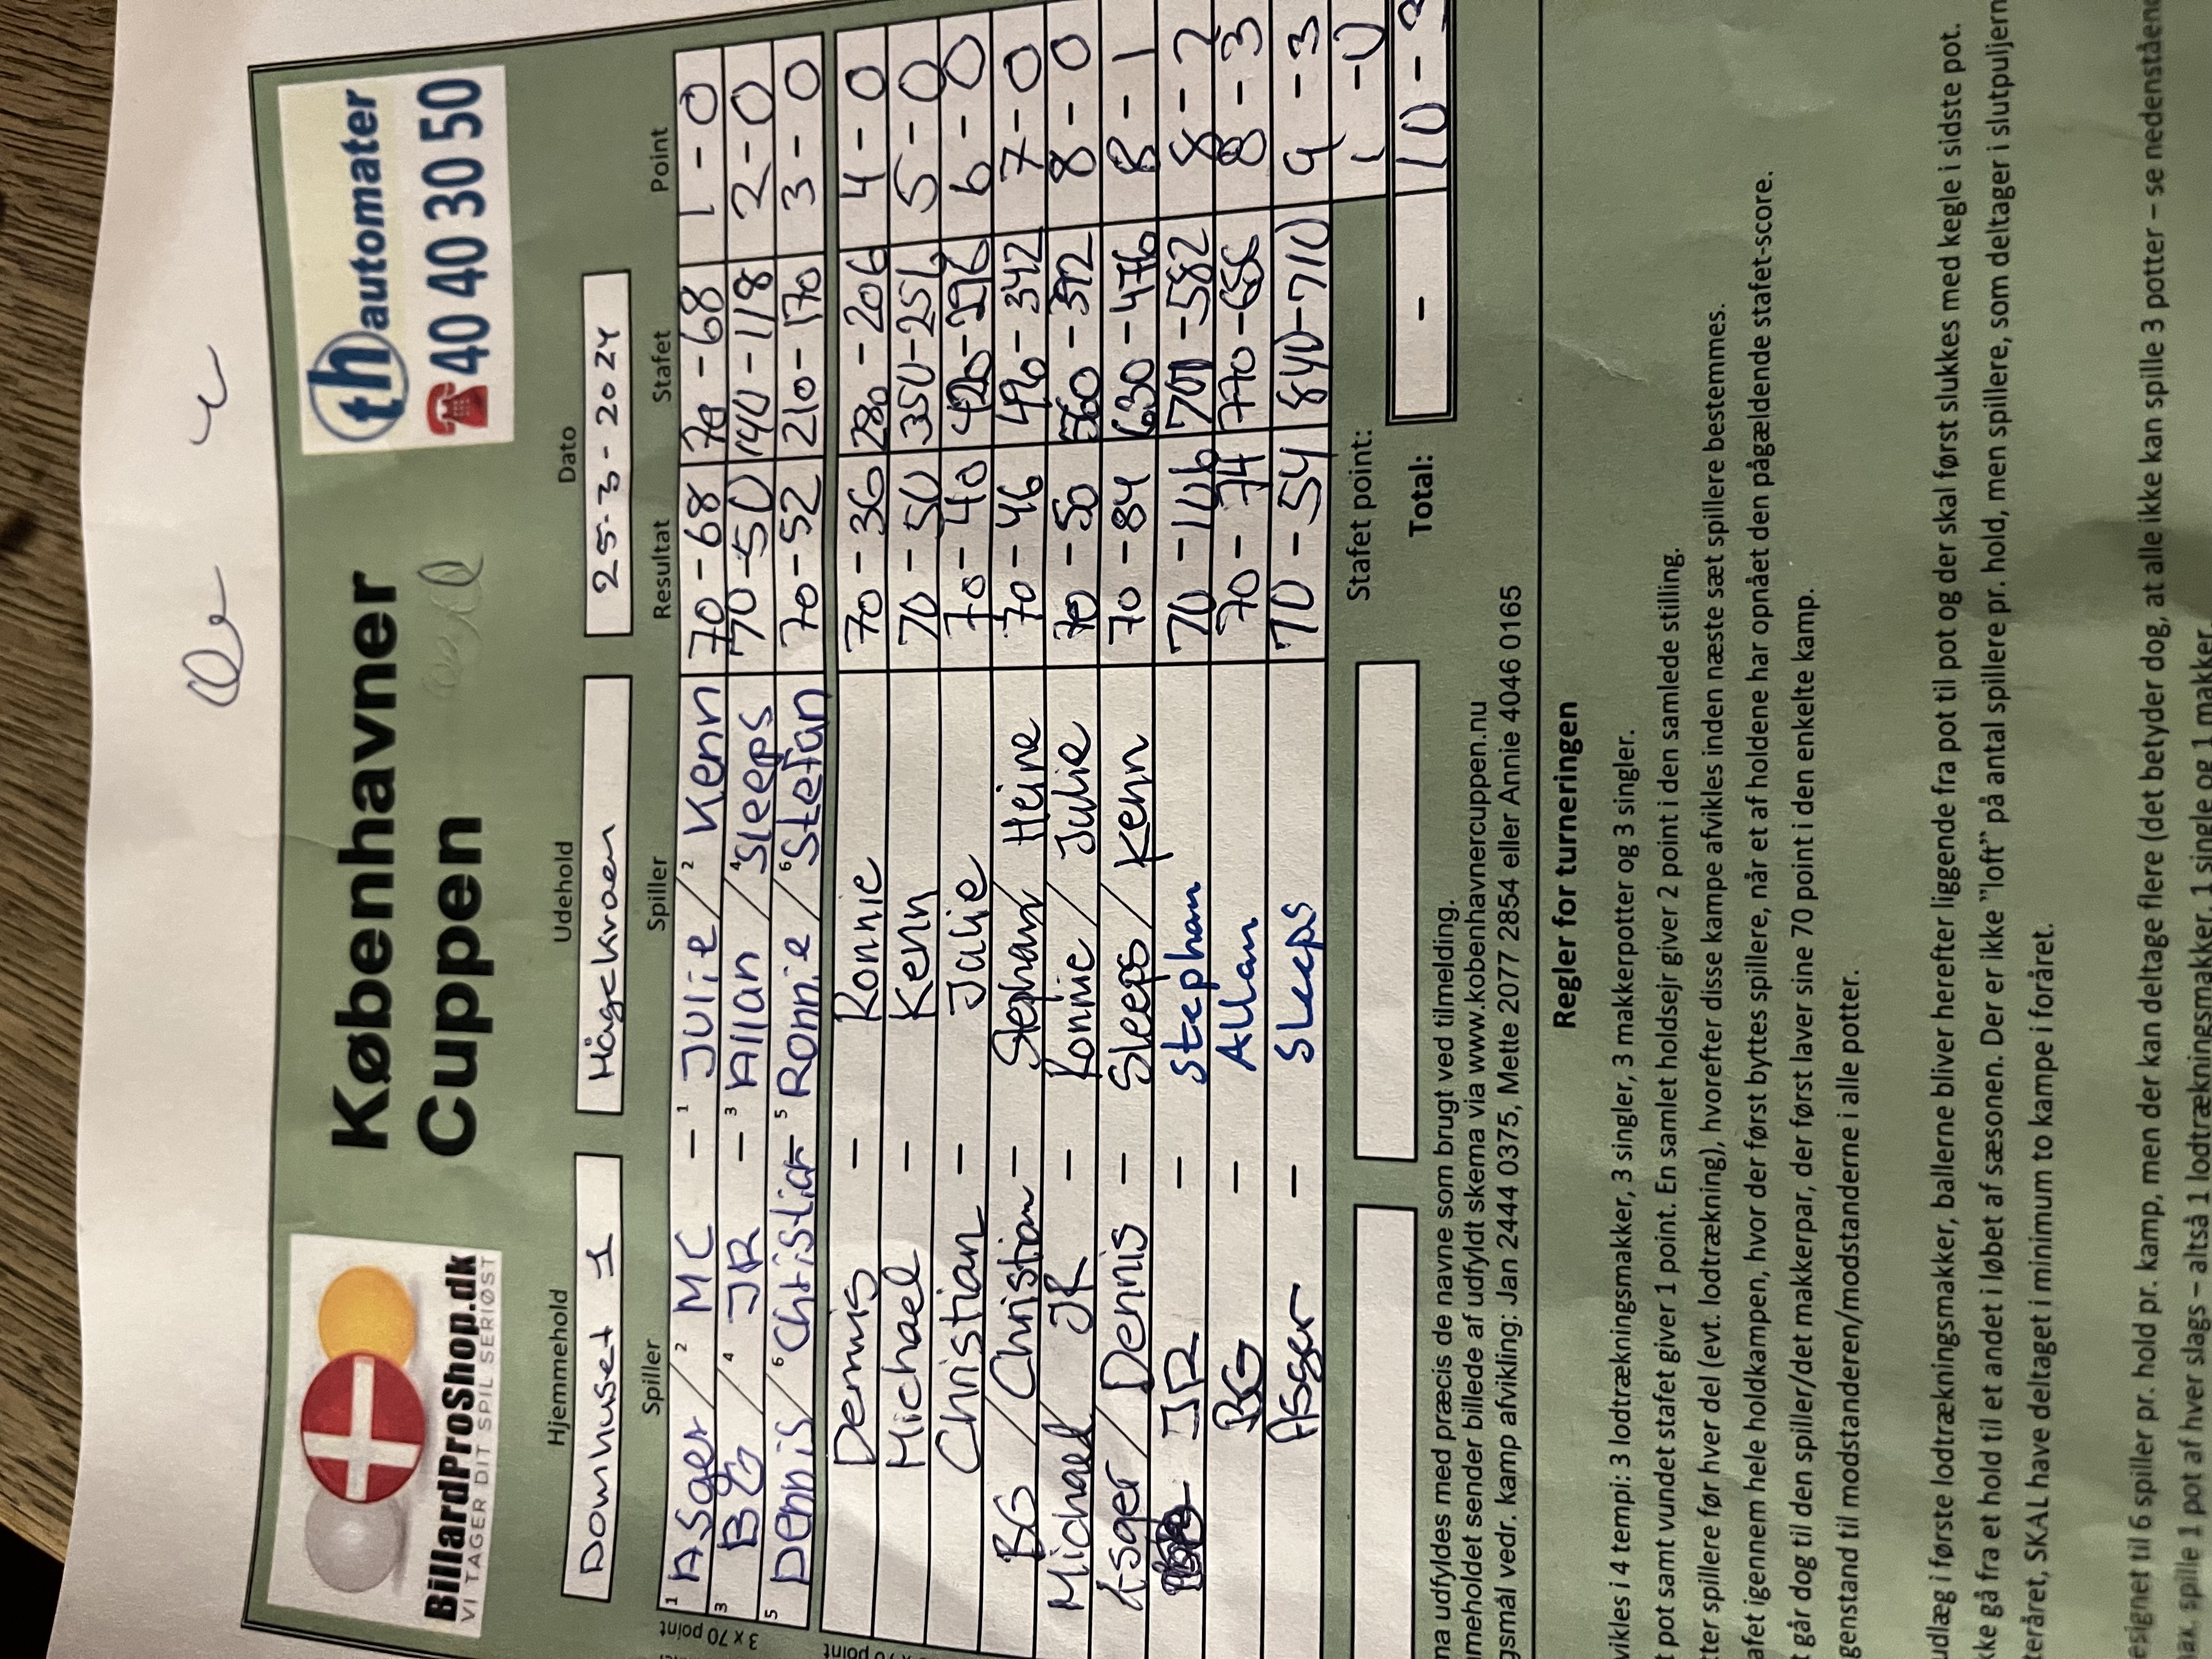 BillardProShop.dk
VI TAGER DIT SPIL SERIØST
Københavner
Cuppen
th automater
☎40 40 30 50
Hjemmehold Udehold Dato
Domhuset 1 Hågekroen 25-3-2024
Spiller Spiller Resultat Stafet Point
3 x 70 point
1 Asger / 2 MC – 1 Julie / 2 Kenn 70-68 70-68 1-0
3 BG / 4 JR – 3 Allan / 4 Sleeps 70-50 140-118 2-0
5 Dennis / 6 Christian – 5 Ronnie / 6 Stefan 70-52 210-170 3-0
point
Dennis – Ronnie 70-36 280-206 4-0
Michael – Kenn 70-50 350-256 5-0
Christian – Julie 70-40 420-296 6-0
BG / Christian – Stephan Heine 70-46 490-342 7-0
Michael JR – Ronnie / Julie 70-50 560-392 8-0
Asger / Dennis – Sleeps / Kenn 70-84 630-476 8-1
JR – Stephan 70-106 700-582 8-2
BG – Allan 70-74 770-656 8-3
Asger – Sleeps 70-54 840-710 9-3
Stafet point: 1-0
Total: – 10-3
ma udfyldes med præcis de navne som brugt ved tilmelding.
mmeholdet sender billede af udfyldt skema via www.kobenhavnercuppen.nu
gsmål vedr. kamp afvikling: Jan 2444 0375, Mette 2077 2854 eller Annie 4046 0165
Regler for turneringen
vikles i 4 tempi: 3 lodtrækningsmakker, 3 singler, 3 makkerpotter og 3 singler.
t pot samt vundet stafet giver 1 point. En samlet holdsejr giver 2 point i den samlede stilling.
tter spillere før hver del (evt. lodtrækning), hvorefter disse kampe afvikles inden næste sæt spillere bestemmes.
afet igennem hele holdkampen, hvor der først byttes spillere, når et af holdene har opnået den pågældende stafet-score.
t går dog til den spiller/det makkerpar, der først laver sine 70 point i den enkelte kamp.
genstand til modstanderen/modstanderne i alle potter.
udlæg i første lodtrækningsmakker, ballerne bliver herefter liggende fra pot til pot og der skal først slukkes med kegle i sidste pot.
kke gå fra et hold til et andet i løbet af sæsonen. Der er ikke "loft" på antal spillere pr. hold, men spillere, som deltager i slutpuljern
teråret, SKAL have deltaget i minimum to kampe i foråret.
esignet til 6 spiller pr. hold pr. kamp, men der kan deltage flere (det betyder dog, at alle ikke kan spille 3 potter – se nedenståen
nax. spille 1 pot af hver slags – altså 1 lodtrækningsmakker, 1 single og 1 makker.